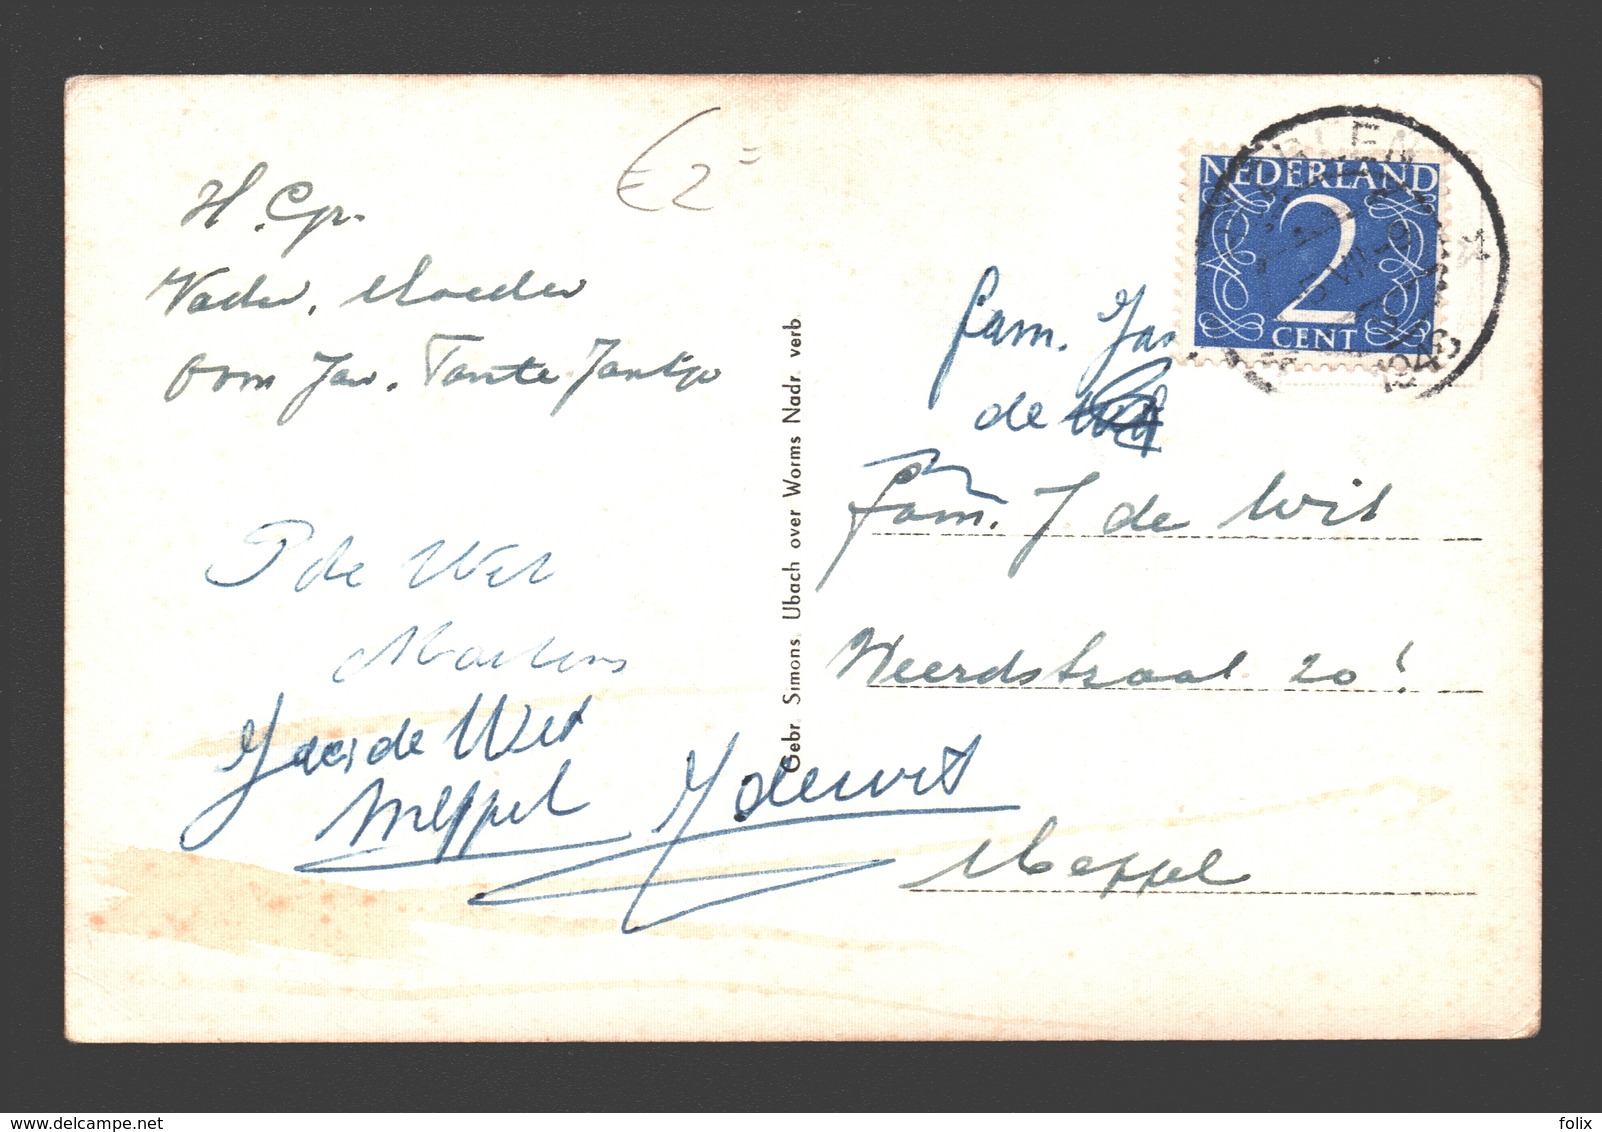 € 2 =
H. Gr.
Vader, Moeder
Oom Jan. Tante Jantje
P de Wit
Martens
J de Wit
Meppel J de Wit
Gebr. Simons, Ubach over Worms Nadr verb.
NEDERLAND
2
CENT
HEERLEN
1946
fam. Jan
de
fam. J de Wit
Weerdstraat 20!
Meppel
delcampe.net
folix